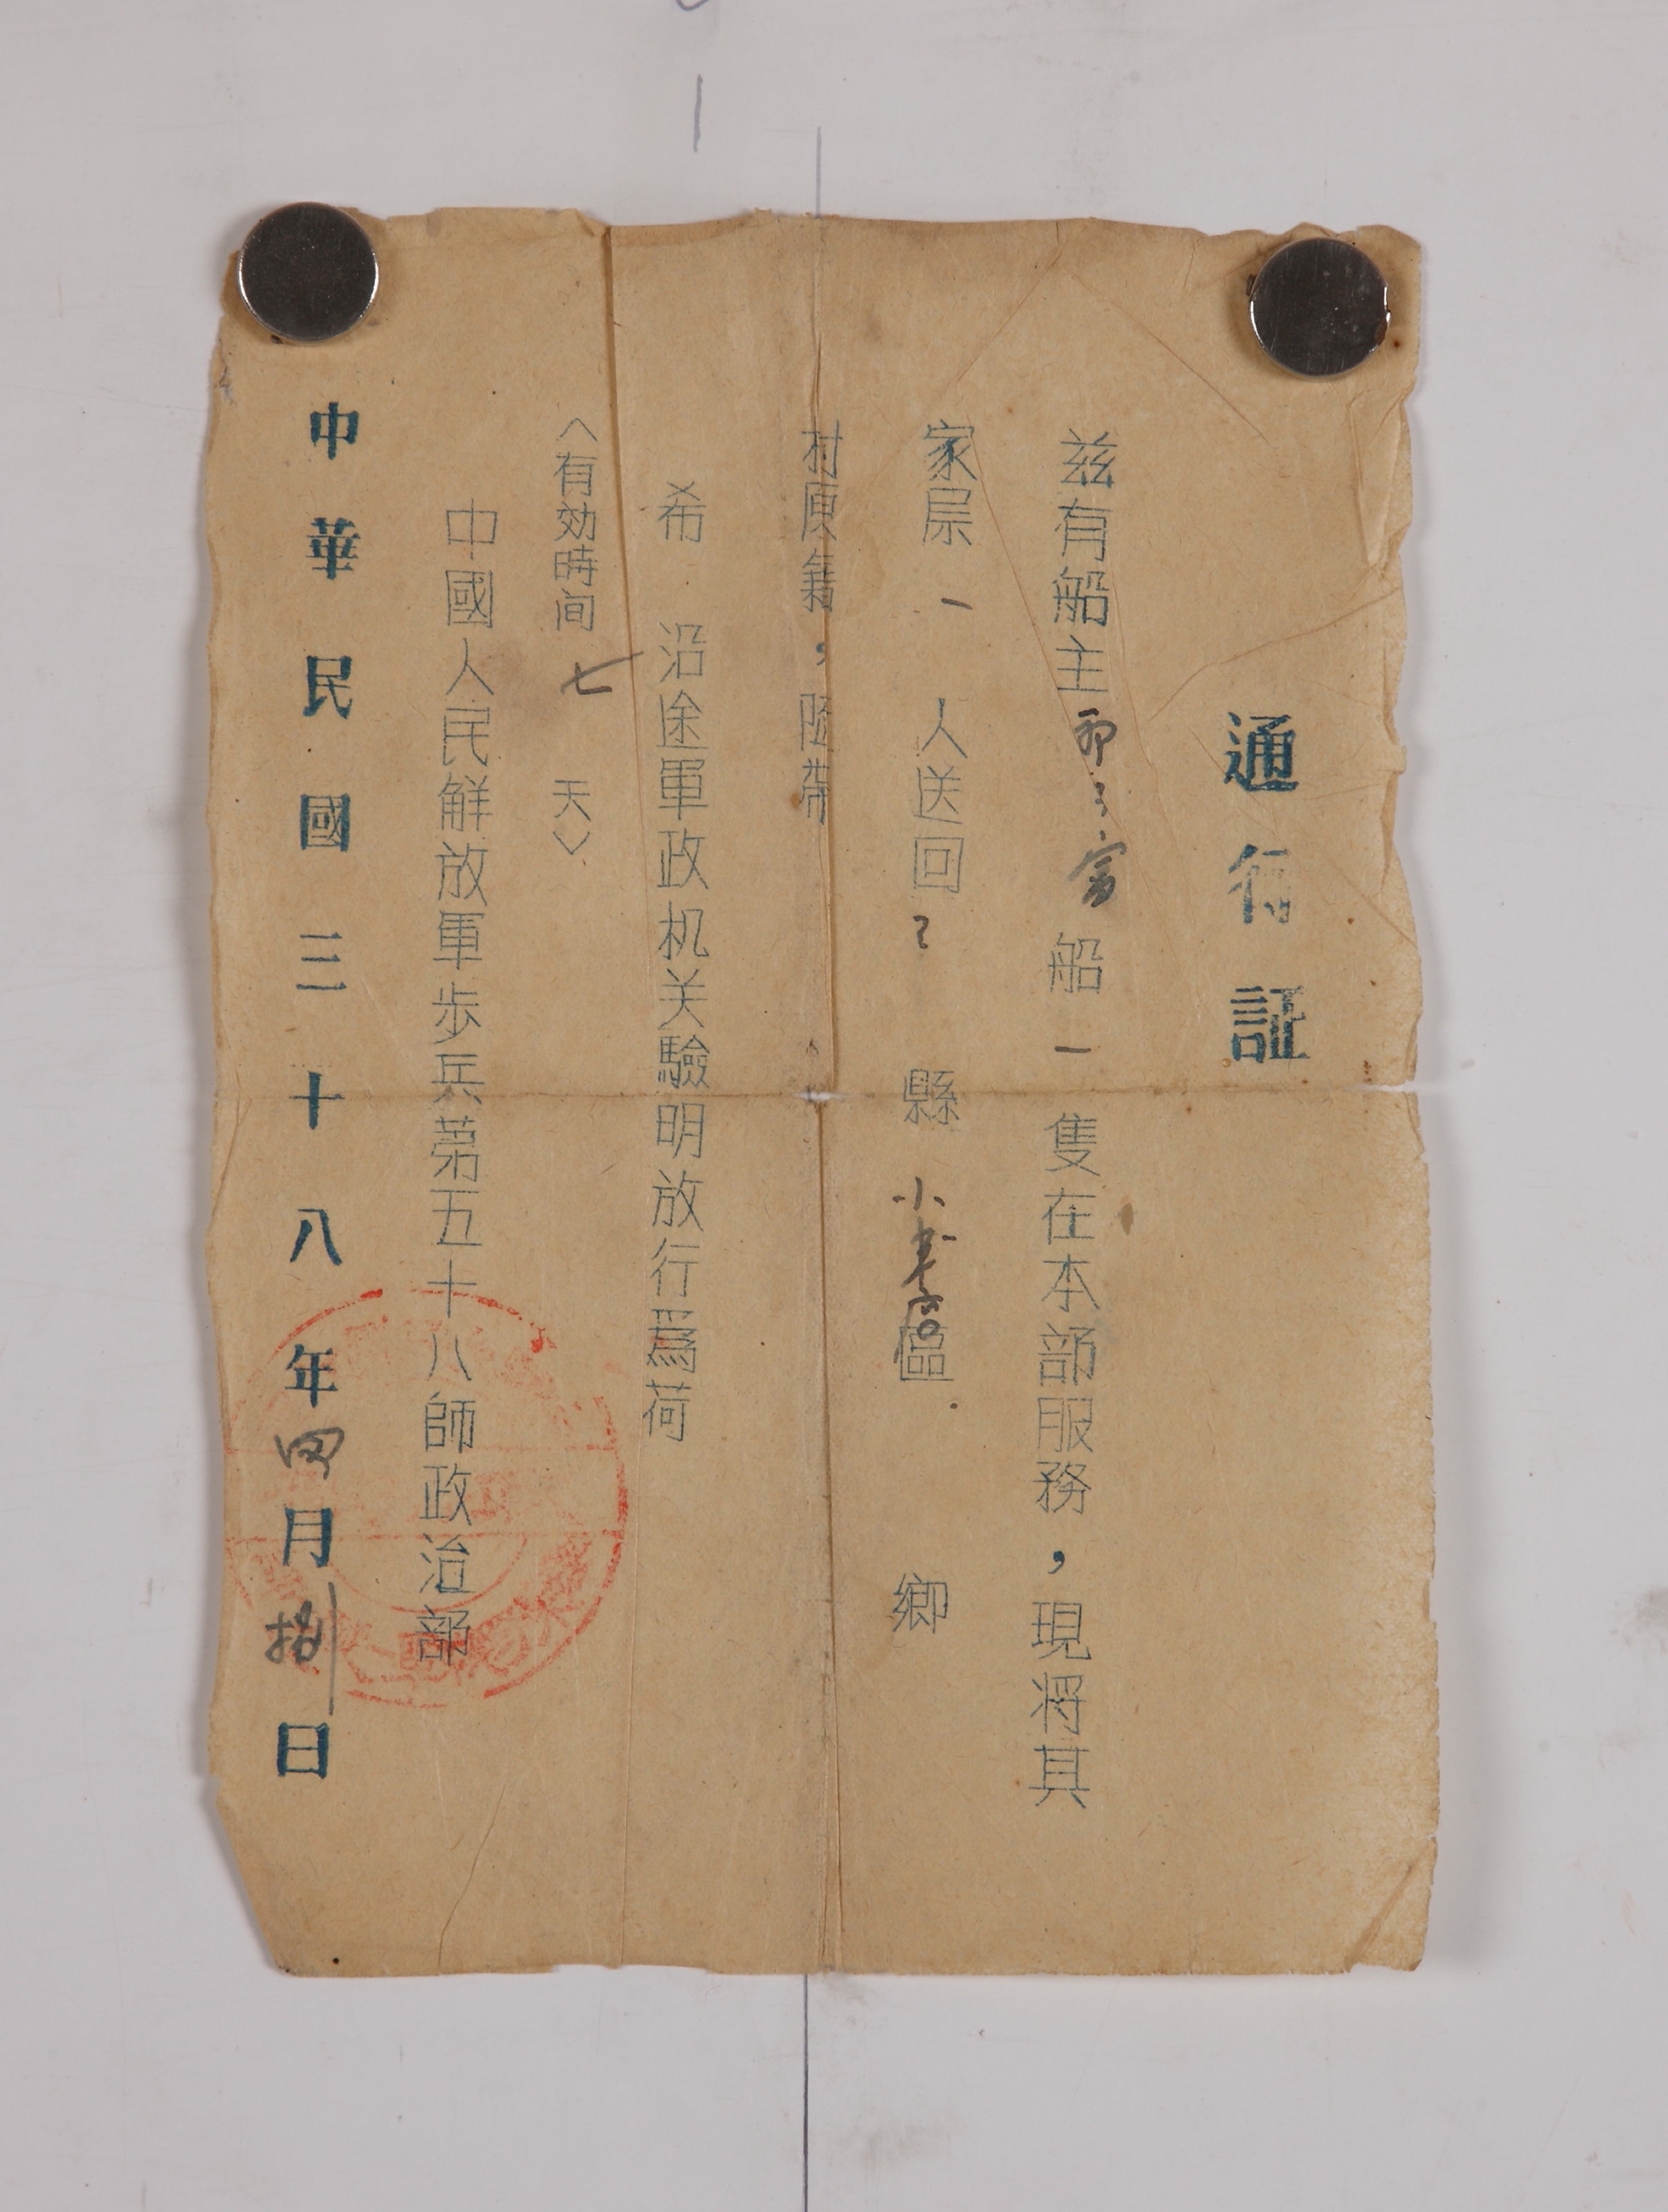 通行証
兹有船主富船一隻在本部服務，現将其
家属一人送回縣小區鄉
村原籍，随帶
希沿途軍政机关驗明放行爲荷
〈有効時间七天〉
中國人民解放軍步兵第五十八師政治部
中華民國三十八年四月捌日